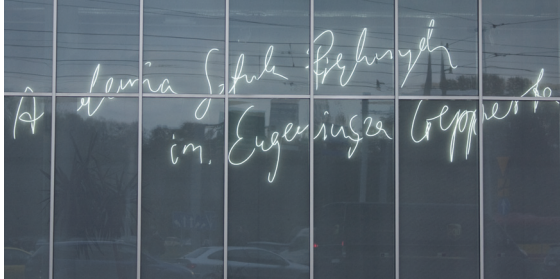 Akademia Sztuk Pięknych
im. Eugeniusza Gepperta